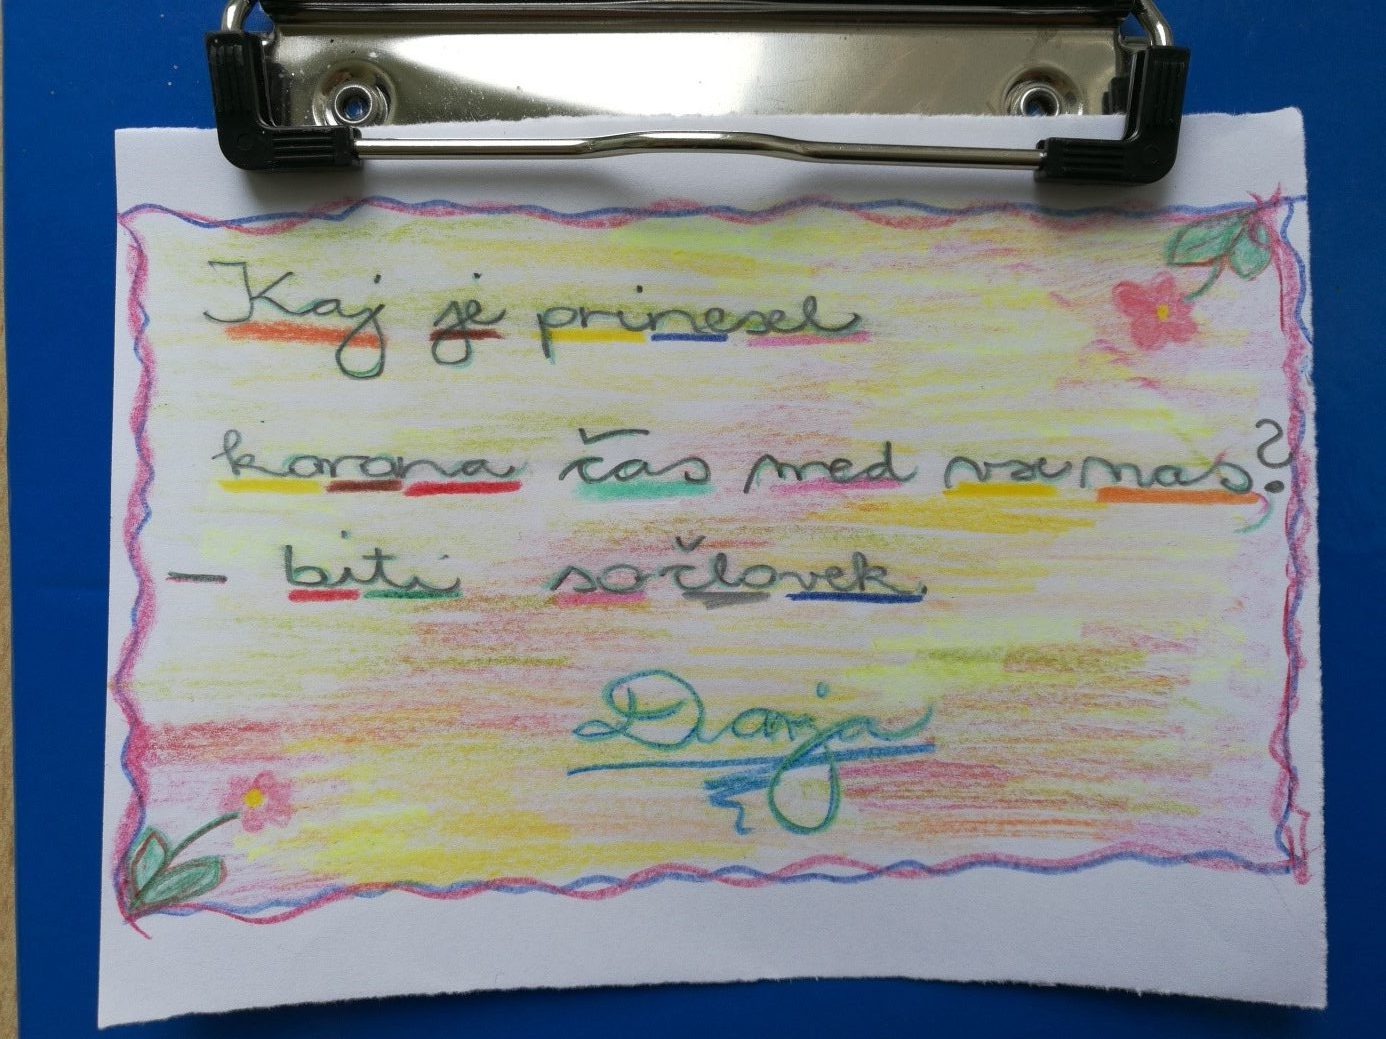 Kaj je prinesel
korona čas med vse nas?
- biti sočlovek.
Darja